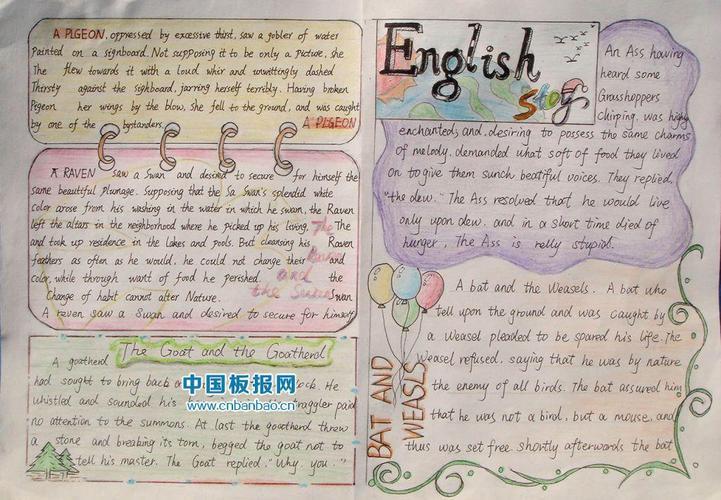 A PLGEON, oppressed by excessive thirst, saw a gobler of water
painted on a signboard. Not supposing it to be only a picture, she
The flew towards it with a loud whir and unwittingly dashed
Thirsty against the sighboard, jarring herself terribly. Having broken
Pegeon her wings by the blow, she fell to the ground, and was caught
by one of the bystanders. A PLGEON
A RAVEN saw a Swan and desired to secure for himself the
same beautiful plumage. Supposing that the Sa Swan's splendid white
color arose from his washing in the water in which he swam, the Raven
left the altars in the neighborhood where he picked up his living. The The
and took up residence in the lakes and pools. But cleansing his Raven
feathers as often as he would, he could not change their Raven and
color, while through want of food he perished. and the
Change of habit cannot alter Nature. the Swan swan
A raven saw a Swan and desired to secure for himself
The Goat and the Goatherd
A goatherd
had sought to bring back a ck. He
whistled and sounded his traggler paid
no attention to the summons. At last the goatherd threw
a stone and breaking its torn, begged the goat not to
tell his master. The Goat replied, "Why, you."
中国板报网
www.cnbanbao.cn
English
story
An Ass having
heard some
Grasshoppers
chirping, was highy
enchanted, and, desiring to possess the same charms
of melody, demanded what soft of food they lived
on to give them sunch beatiful voices. They replied,
"the dew." The Ass resolved that he would live
only upon dew, and in a short time died of
hunger, The Ass is relly stupid.
BAT AND
WEASLS
A bat and the Weasels. A bat who
tell upon the ground and was caught by
a Weasel pleaded to be spared his life. The
Weasel refused, saying that he was by nature
the enemy of all birds. The bat assured him
that he was not a bird, but a mouse, and
thus was set free. Shortly afterwards the bat